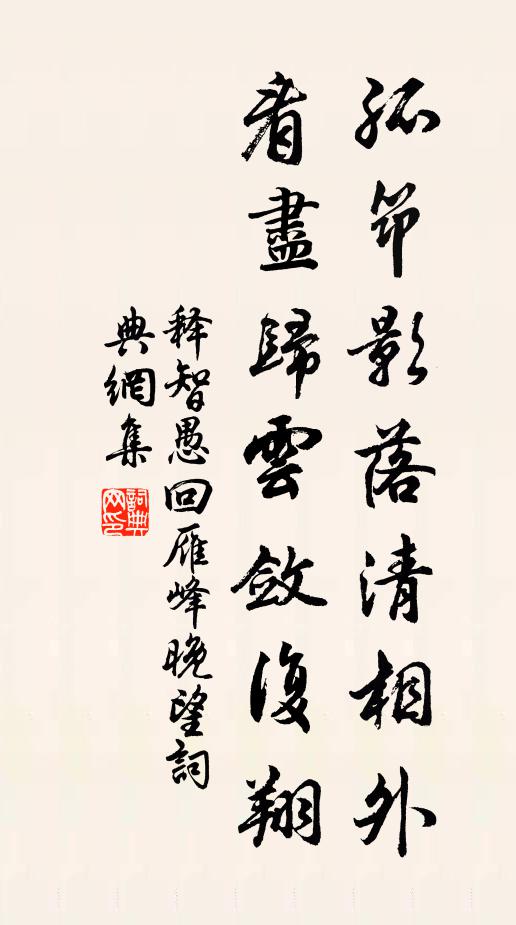 孤筇影落清相外
看盡歸雲斂復翔
释智愚回雁峰晚望詞
典網集
詞典网印